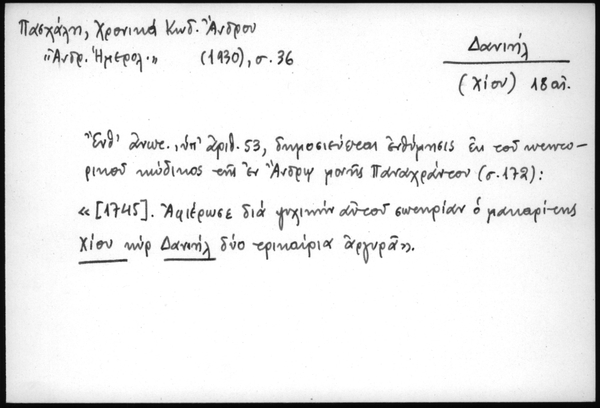 Πασχάλη, Χρονικά Κωδ. Ἄνδρου
"Ἀνδρ. Ἡμερολ." (1930), σ. 36
Δανιήλ
(Χίου) 18 αἰ.
Ἔνθ' ἄνωτ., ὑπ' ἀριθ. 53, δημοσιεύεται ἐνθύμησις ἐκ τοῦ κτιτο-
ρικοῦ κώδικος τῆς ἐν Ἄνδρῳ μονῆς Παναχράντου (σ. 172):
« [1745]. Ἀφιέρωσε διά ψυχικήν αὐτοῦ σωτηρίαν ὁ μακαρίτης
Χίου κύρ Δανιήλ δύο τρικαίρια ἀργυρᾶ».